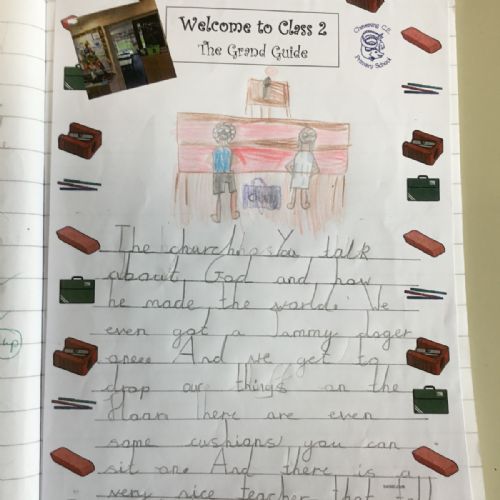 Welcome to Class 2
The Grand Guide
Cheswing C.E.
Primary School
The church You talk
about God and how
he made the world. We
even got a Jammy doger
one. And we get to
drop our things on the
floor. There are even
some cushions you can
sit on. And there is a
very nice teacher that